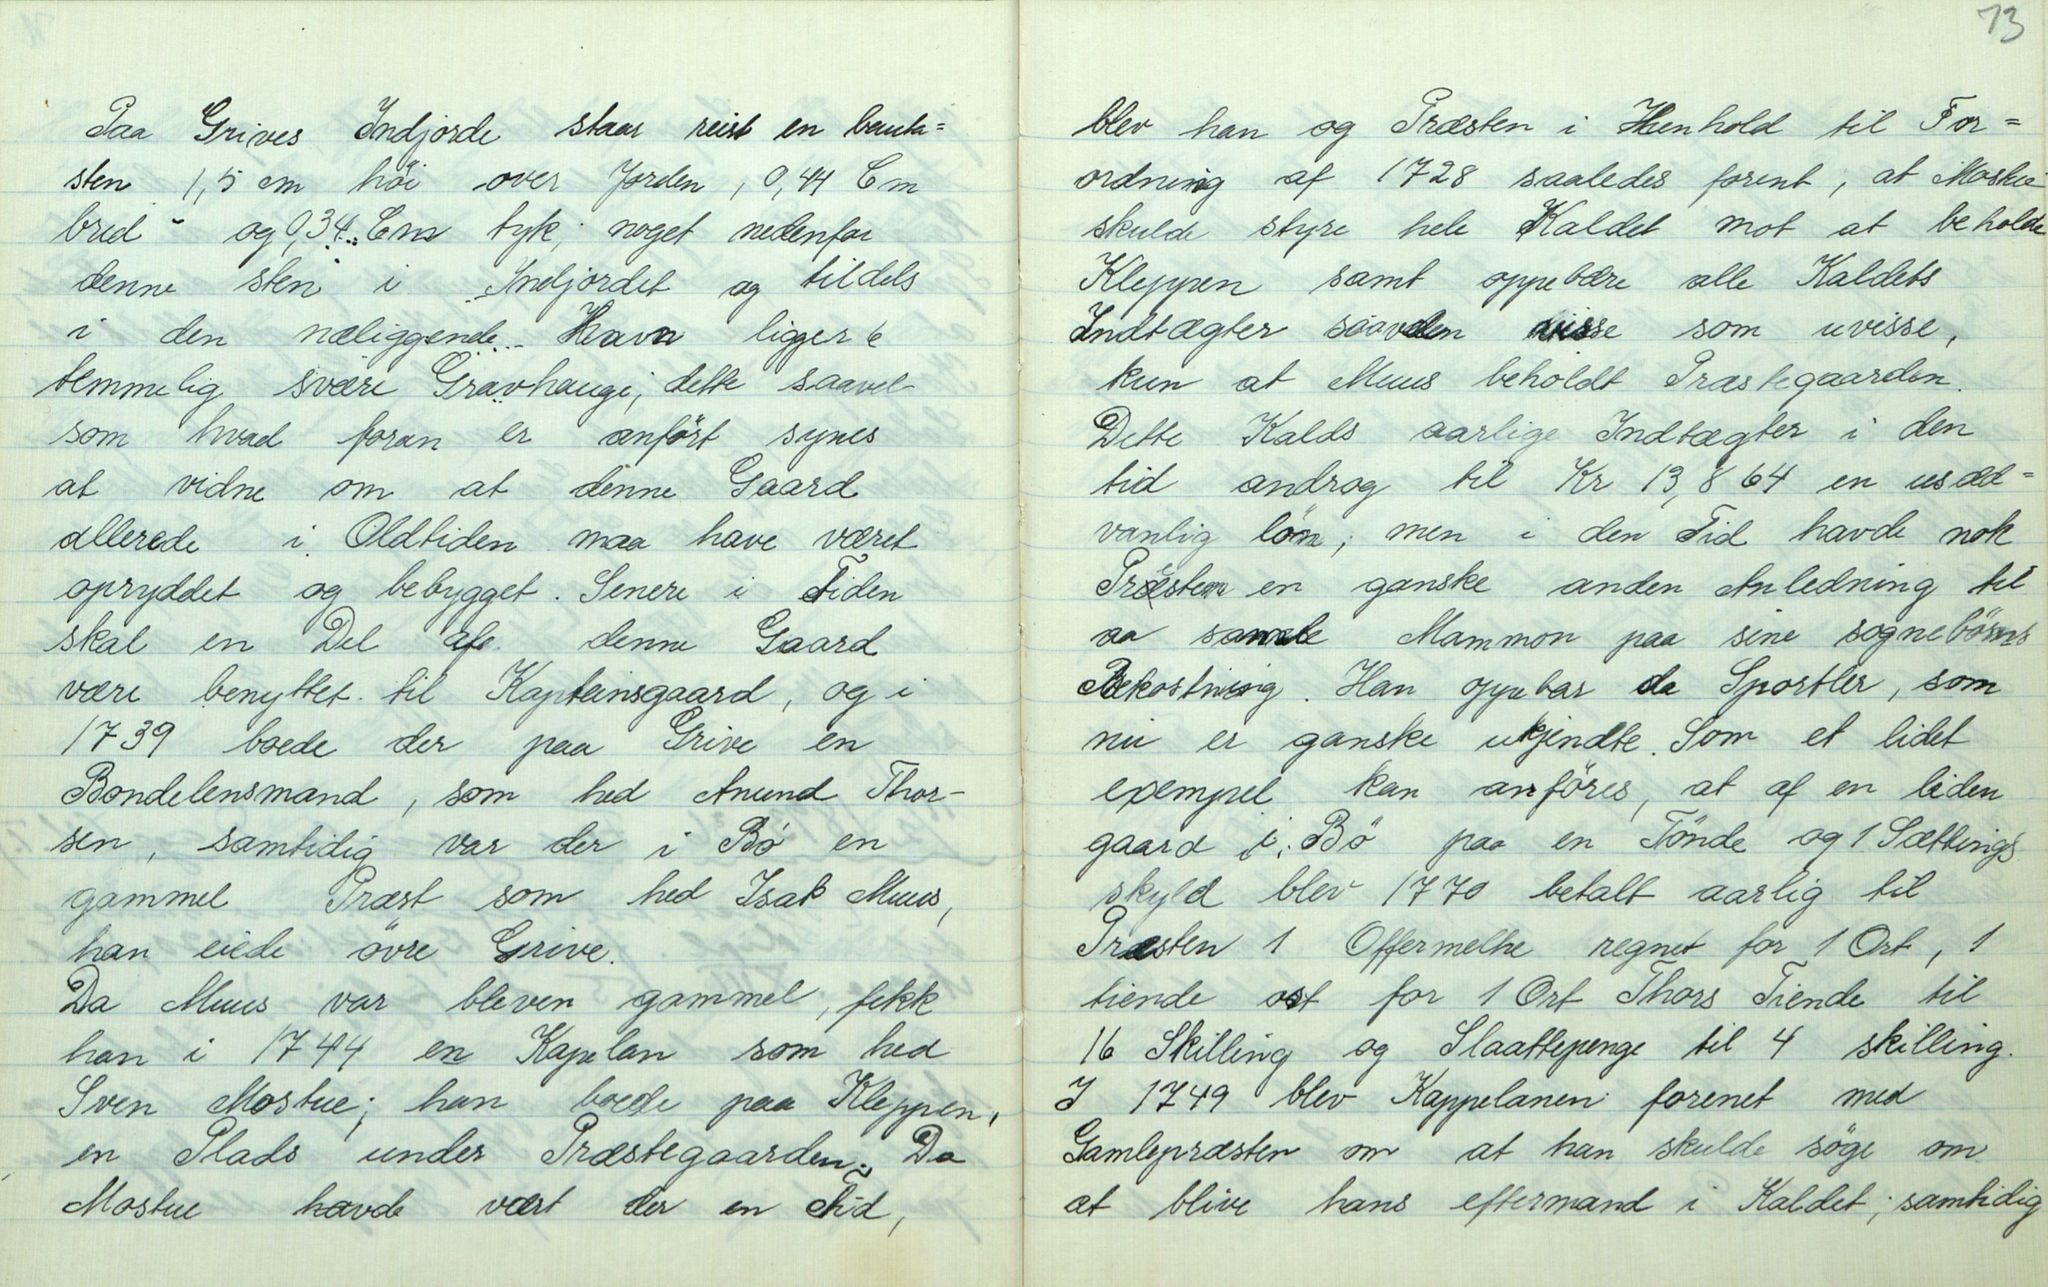 Paa Grives Indjorde staar reist en bauta=
sten 1,5 cm höi over Jorden, 0,44 Cm
bred og 0,34 Cm tyk; noget nedenfor
denne sten i Indjordet og tildels
i den næliggende Havn ligger 6
temmelig svære Gravhauge, dette saavel
som hvad foran er anført synes
at vidne om at denne Gaard
allerede i Oldtiden maa have været
opryddet og bebygget. Senere i Tiden
skal en Del af denne Gaard
være benyttet til Kapteinsgaard, og i
1739 boede der paa Grive en
Bondelensmand, som hed Anund Thor-
sen, samtidig var der i Bö en
gammel Præst som hed Isak Muus,
han eiede övre Grive.
Da Muus var bleven gammel, fikk
han i 1744 en Kapelan som hed
Sven Mostue; han boede paa Kleppen,
en Plads under Præstegaarden. Da
Mostue havde vært der en Tid,
73
blev han og Præsten i Henhold til For=
ordning af 1728 saaledes forent, at Mostue
skulde styre hele Kaldet mot at beholde
Kleppen samt oppebære alle Kaldets
Indtægter saavden visse som uvisse,
kun at Muus beholdt Præstegaarden.
Dette Kalds aarlige Indtægter i den
tid androg til Kr 13,864 en usæd=
vanlig lön; men i den Tid havde nok
Præstene en ganske anden Anledning til
aa samle Mammon paa sine sognebörns
Bekostning. Han oppebar da Sportler, som
nu er ganske ukjendte. Som et lidet
exempel kan anföres, at af en liden
gaard i Bö paa en Tönde og 1 Sættings
skyld blev 1770 betalt aarlig til
Præsten 1 Offermelke regnet for 1 Ort, 1
tiende ost for 1 Ort Thors Tiende til
16 Skilling og Slaattepenge til 4 skilling.
I 1749 blev Kappelanen forenet med
Gamlepræsten om at han skulde söge om
at blive hans eftermand i Kaldet; samtidig